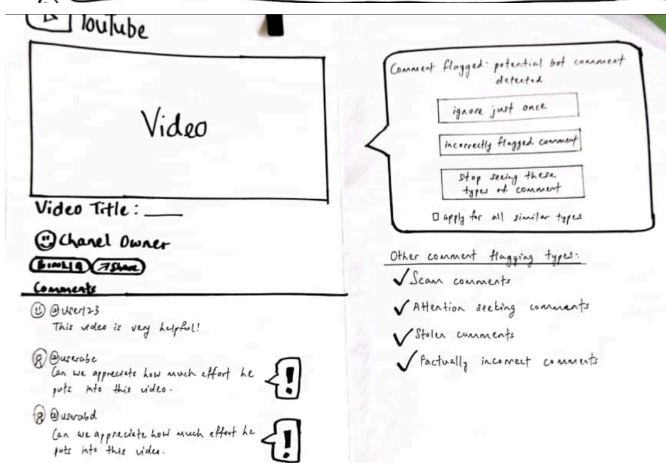 YouTube
Video
Video Title:
Chanel Owner
Share
Comments
@user123
This video is very helpful!
@userabc
Can we appreciate how much effort he
puts into this video.
!
@userabd
Can we appreciate how much effort he
puts into this video.
!
Comment flagged: potential bot comment
detected
ignore just once
incorrectly flagged comment
Stop seeing these
types of comment
apply for all similar types
Other comment flagging types:
Scam comments
Attention seeking comments
Stolen comments
Factually incorrect comments